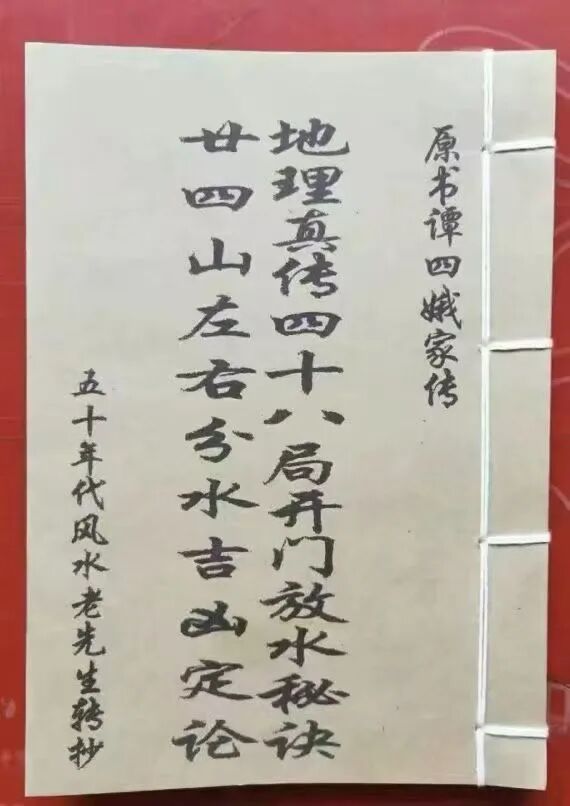 原书谭四娥家传
地理真传四十八局开门放水秘诀
廿四山左右分水吉凶定论
五十年代风水老先生转抄